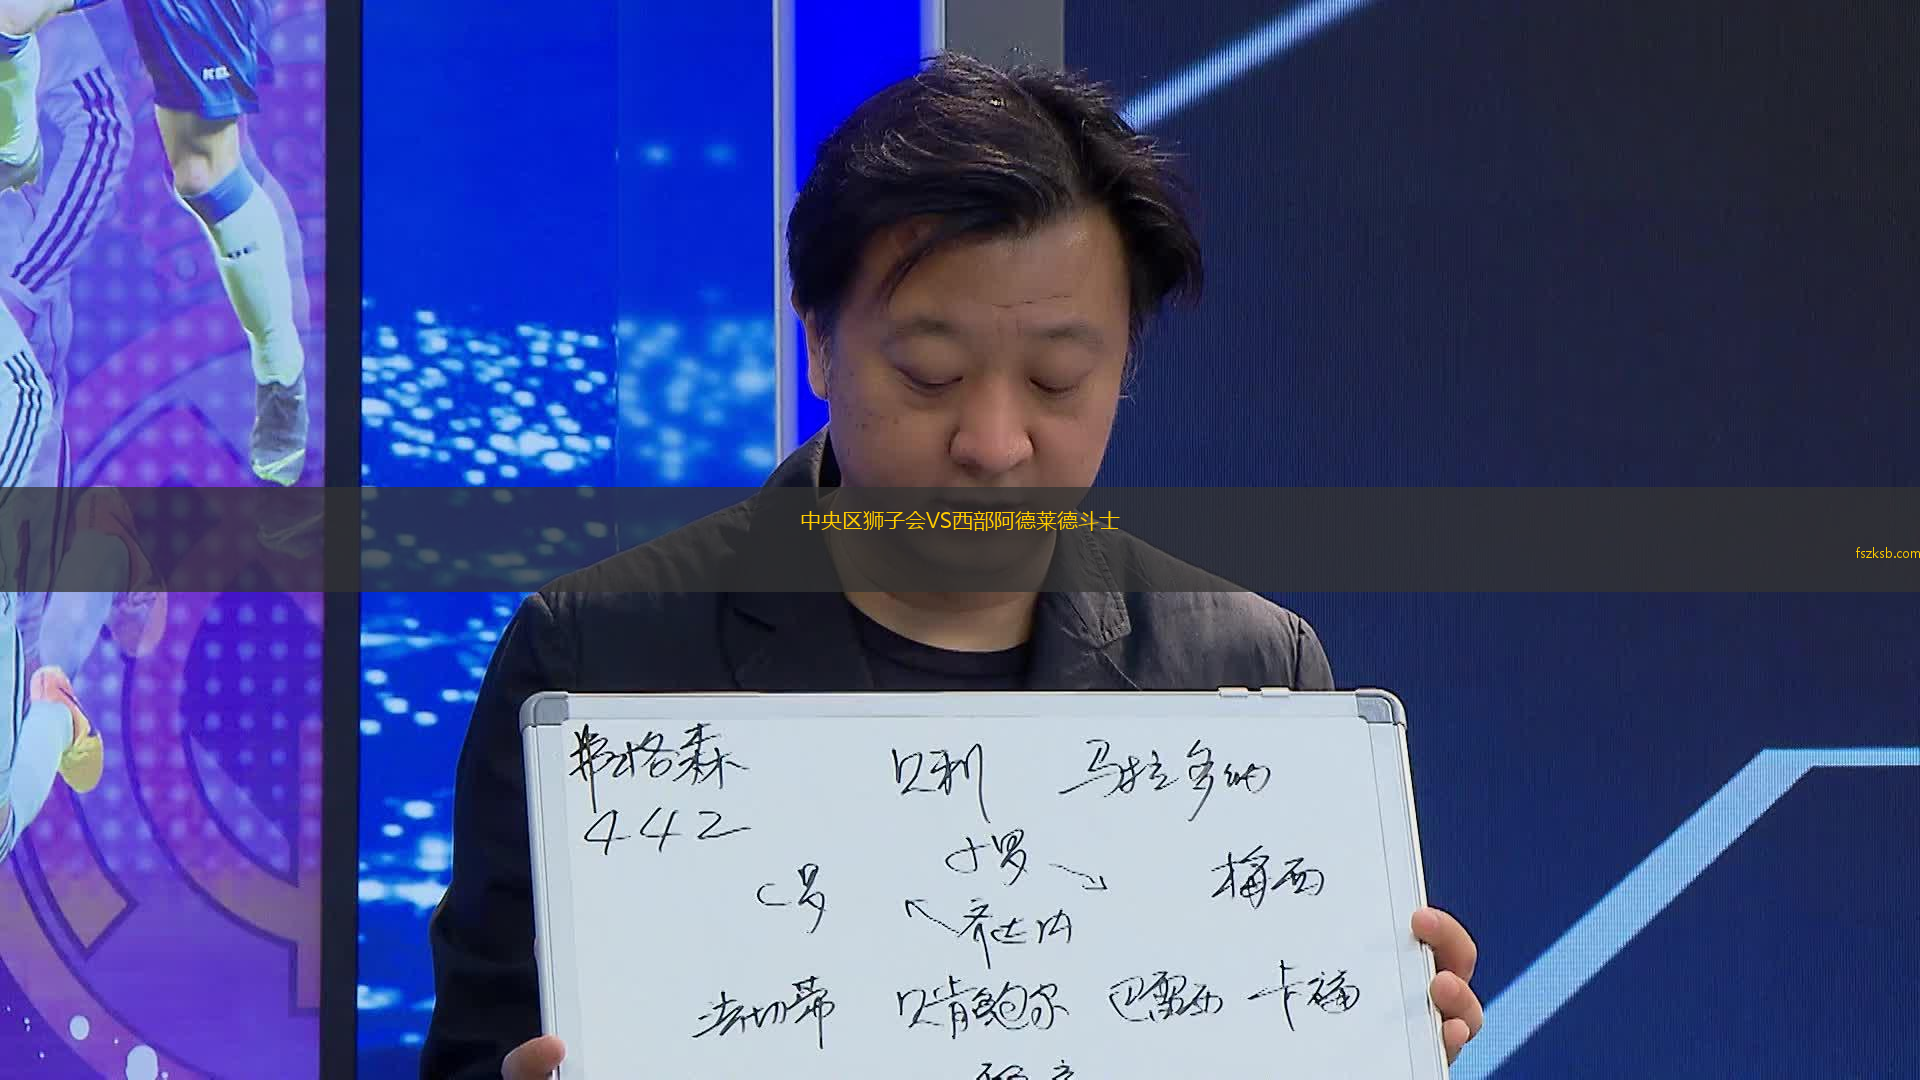 KEL
中央区狮子会VS西部阿德莱德斗士
fszksb.com
弗格森 贝利 马拉多纳
442
小罗
C罗 梅西
齐达内
法切蒂 贝肯鲍尔 巴雷西 卡福